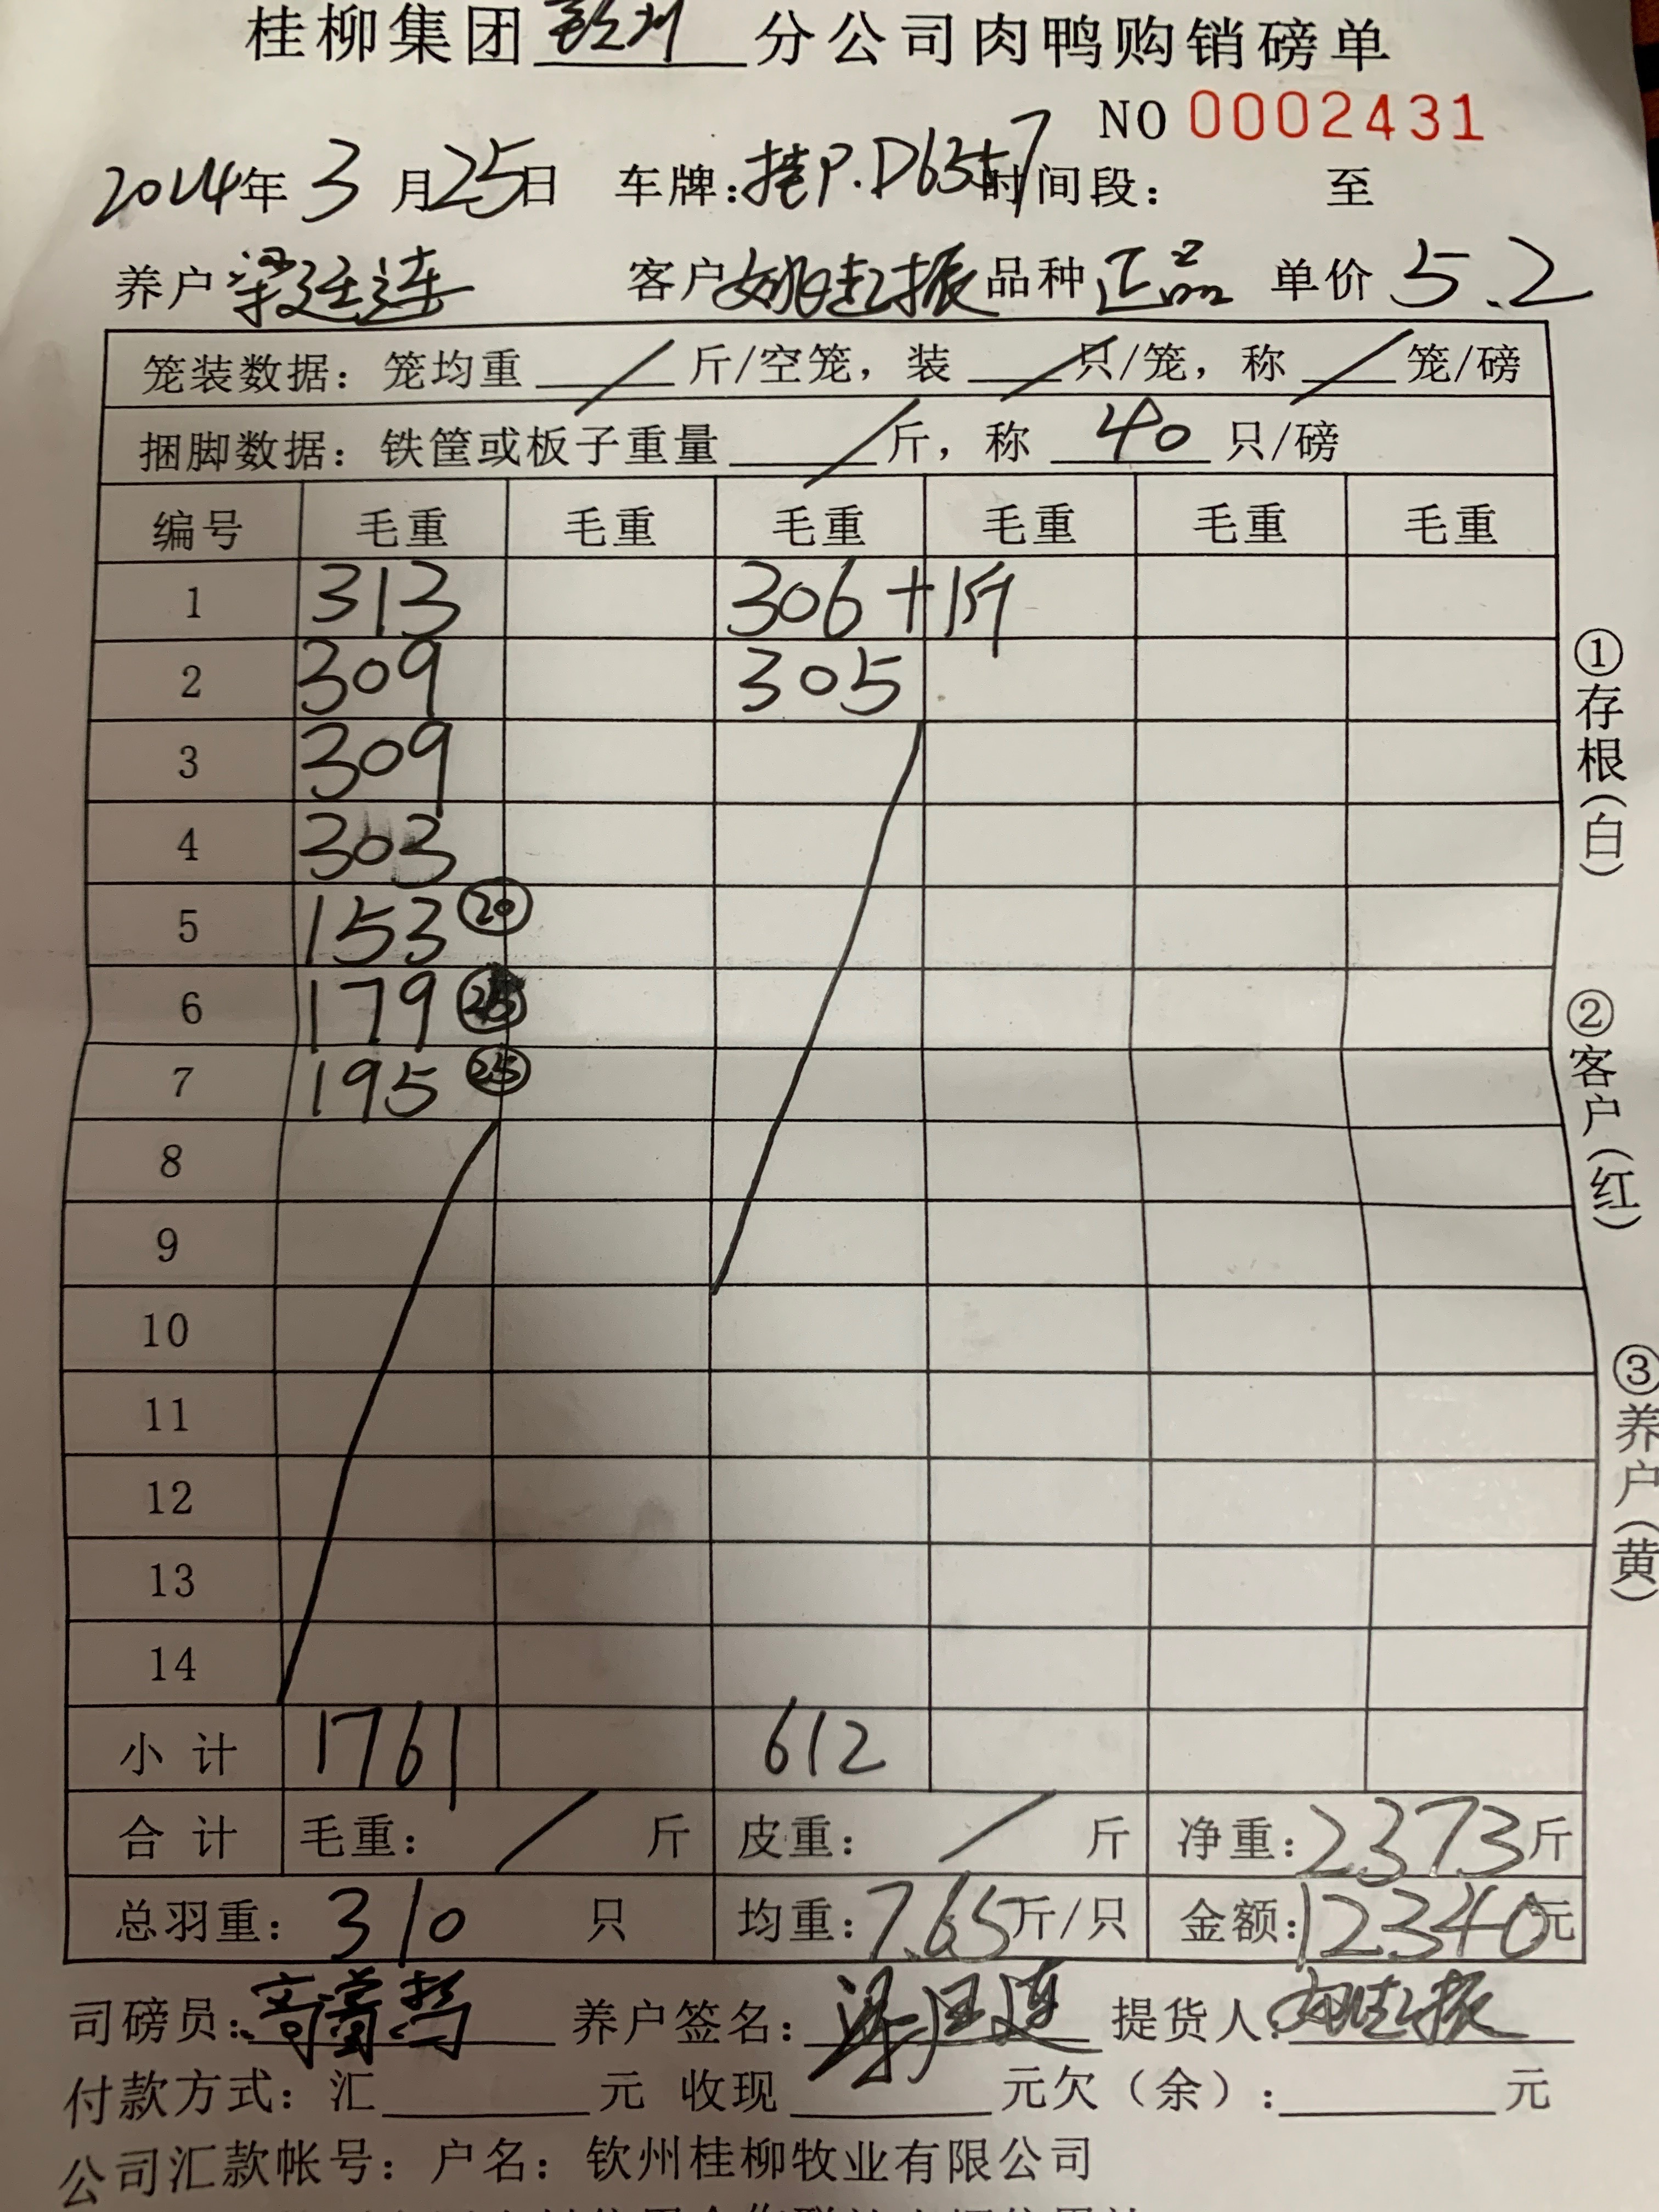 桂柳集团钦州分公司肉鸭购销磅单
NO 0002431
2024年3月25日 车牌：桂P.D6357 时间段： 至
养户梁廷连 客户姚赶振 品种正品 单价5.2
笼装数据：笼均重 / 斤/空笼，装 / 只/笼，称 / 笼/磅
捆脚数据：铁筐或板子重量 / 斤，称 40 只/磅
编号 毛重 毛重 毛重 毛重 毛重 毛重
1 313 306+1斤
2 309 305
3 309
4 303
5 153 ⑳
6 179
7 195 ㉕
8
9
10
11
12
13
14
小计 1761 612
合计 毛重： / 斤 皮重： / 斤 净重：2373斤
总羽重：310 只 均重：7.65斤/只 金额：12340元
司磅员： 养户签名：梁廷连 提货人：姚赶振
付款方式：汇 元 收现 元欠（余）： 元
公司汇款帐号：户名：钦州桂柳牧业有限公司
①存根（白）
②客户（红）
③养户（黄）